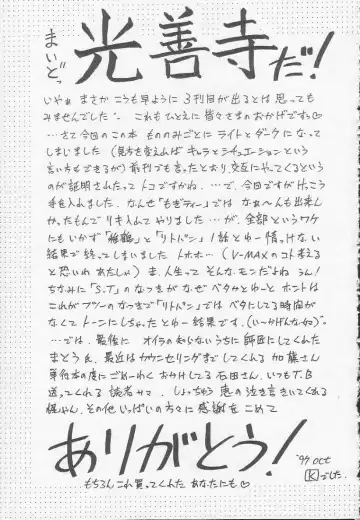 まいどっ
光善寺だ!
いやぁ まさか こうも早ように 3刊目が出るとは 思っても
みませんでした。 これも ひとえに 皆々さまの おかげです♡
…さて 今回のこの本 もののみごとに ライトと ダークに なって
しまいました (見方を変えれば キャラと シチュエーション という
言い方もできるが) 前刊でも言ったとおり、交互に やってくるという
のが証明されたって トコですかね。 …で、今回ですが けっこう
手を入れました。 なんせ「もぎティー」では なぁ〜んも出来ん
かったもんで リキ入れて やりました …が、全部というワケ
にもいかず 「」と「リトパン」1話と ゆー 情っけない
結果で 終ってしまいました トホホ… (V-MAXのコト考える
と恐いわ あたしゃ) ま、人生って そんなモンだよね うん!
ちなみに「S.T」の なっきが なぜ ベタかとゆーと ホントは
これが フツーの なっきで「リトパン」では ベタにしてる時間が
なくて トーンにしちゃった とゆー 結果です。(い〜かげんなyo)。
…では、最後に オイラの知らないうちに 師匠にしてくれた
まとう氏、最近は カウンセリングまで してくれる 加藤さん
単行本の度に ごめーわく おかけしてる 石田さん、いつも T.B
送ってくれる 読者サマ、しょっちゅう 泣き言きいてくれる
様ゃん、その他いっぱいの方々に 感謝を こめて
ありがとう!
'97 oct
Kでした。
もちろん これ買ってくれた あなたにも♡